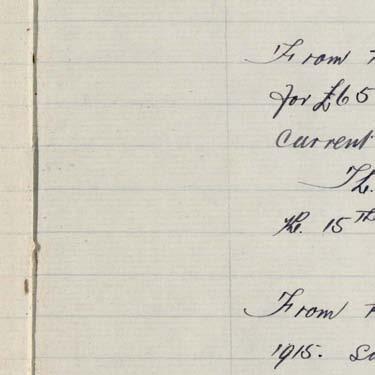 From
for £65
current
Th.
the. 15th
From
1915.